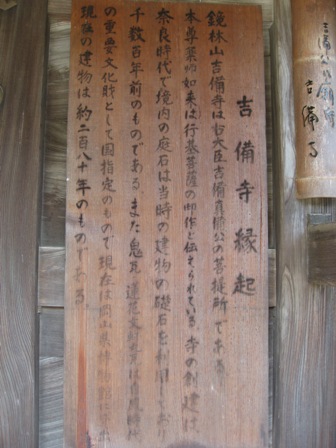 吉備寺縁起
鏡林山吉備寺は右大臣吉備真備公の菩提所である
本尊薬師如来は行基菩薩の御作と伝えられている。寺の創建は、
奈良時代で境内の庭石は当時の建物の礎石を利用しており
千数百年前のものである。また鬼瓦 蓮花文
の重要文化財として国指定のもので 現在は岡山県博物館に
現在の建物は約二百八十年のものである
吉備寺